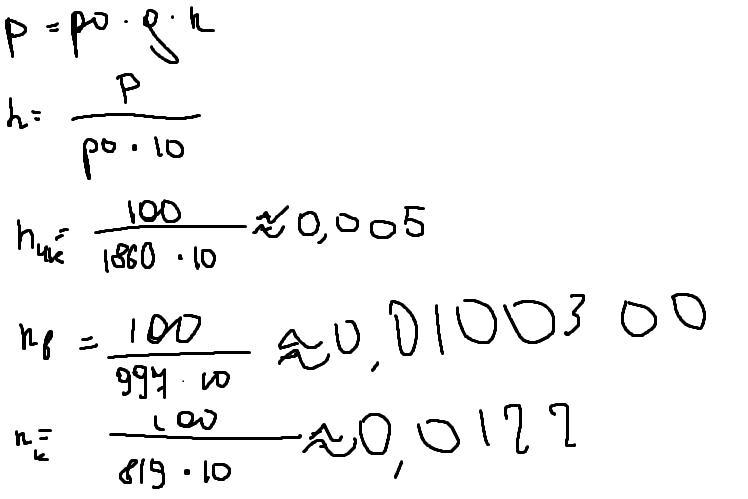 p = po · g · h
h = p / (po · 10)
h чк = 100 / (1860 · 10) ≈ 0,005
h в = 100 / (997 · 10) ≈ 0,0100300
h к = 100 / (819 · 10) ≈ 0,0122